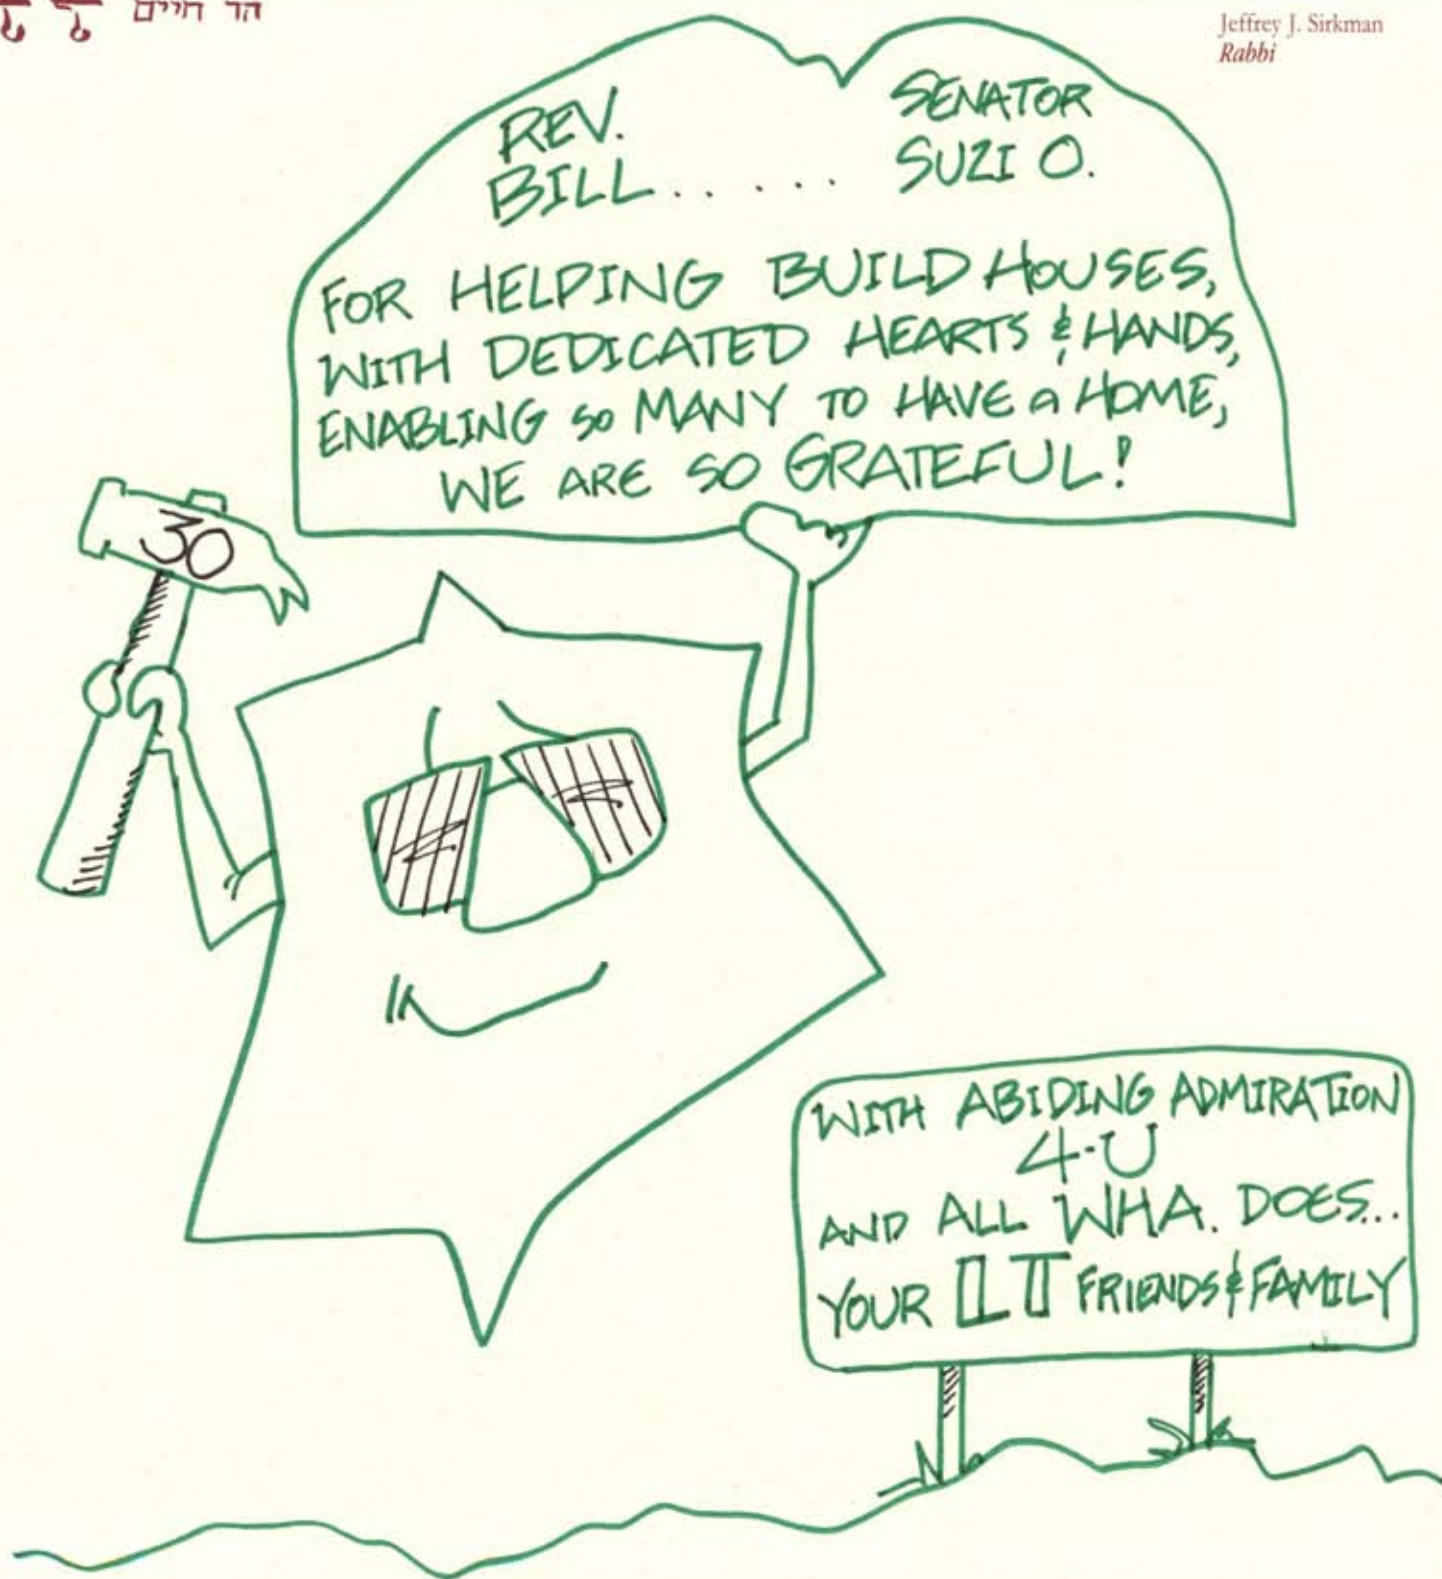 הר חיים
Jeffrey J. Sirkman
Rabbi
REV. SENATOR
BILL...... SUZI O.
FOR HELPING BUILD HOUSES,
WITH DEDICATED HEARTS & HANDS,
ENABLING SO MANY TO HAVE A HOME,
WE ARE SO GRATEFUL!
30
WITH ABIDING ADMIRATION
4-U
AND ALL WHA. DOES...
YOUR LT FRIENDS & FAMILY